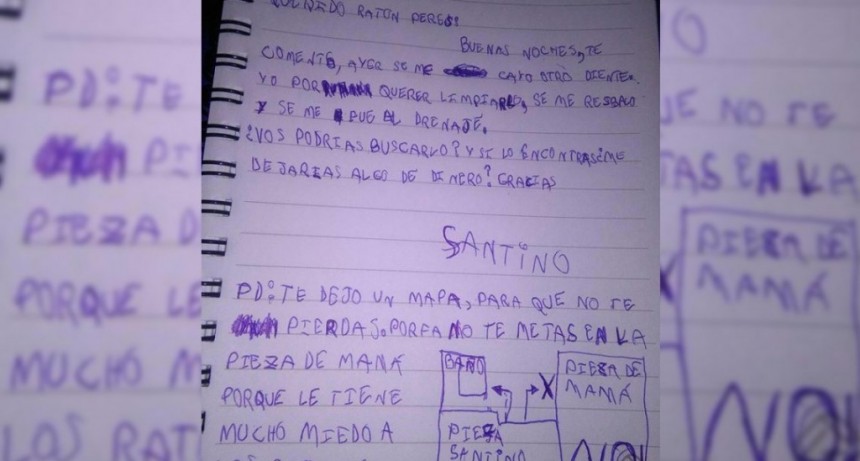 QUERIDO RATON PERES:
BUENAS NOCHES, TE
COMENTO, AYER SE ME CAYO OTRO DIENTE.
YO POR QUERER LIMPIARLO, SE ME RESBALO
Y SE ME FUE AL DRENAJE.
¿VOS PODRIAS BUSCARLO? Y SI LO ENCONTRAS ¿ME
DEJARIAS ALGO DE DINERO? GRACIAS
SANTINO
PD: TE DEJO UN MAPA, PARA QUE NO TE
PIERDAS. PORFA NO TE METAS EN LA
PIEZA DE MAMÁ
PORQUE LE TIENE
MUCHO MIEDO A
BAÑO
PIEZA DE
MAMÁ
X
NO!
PIEZA
SANTINO